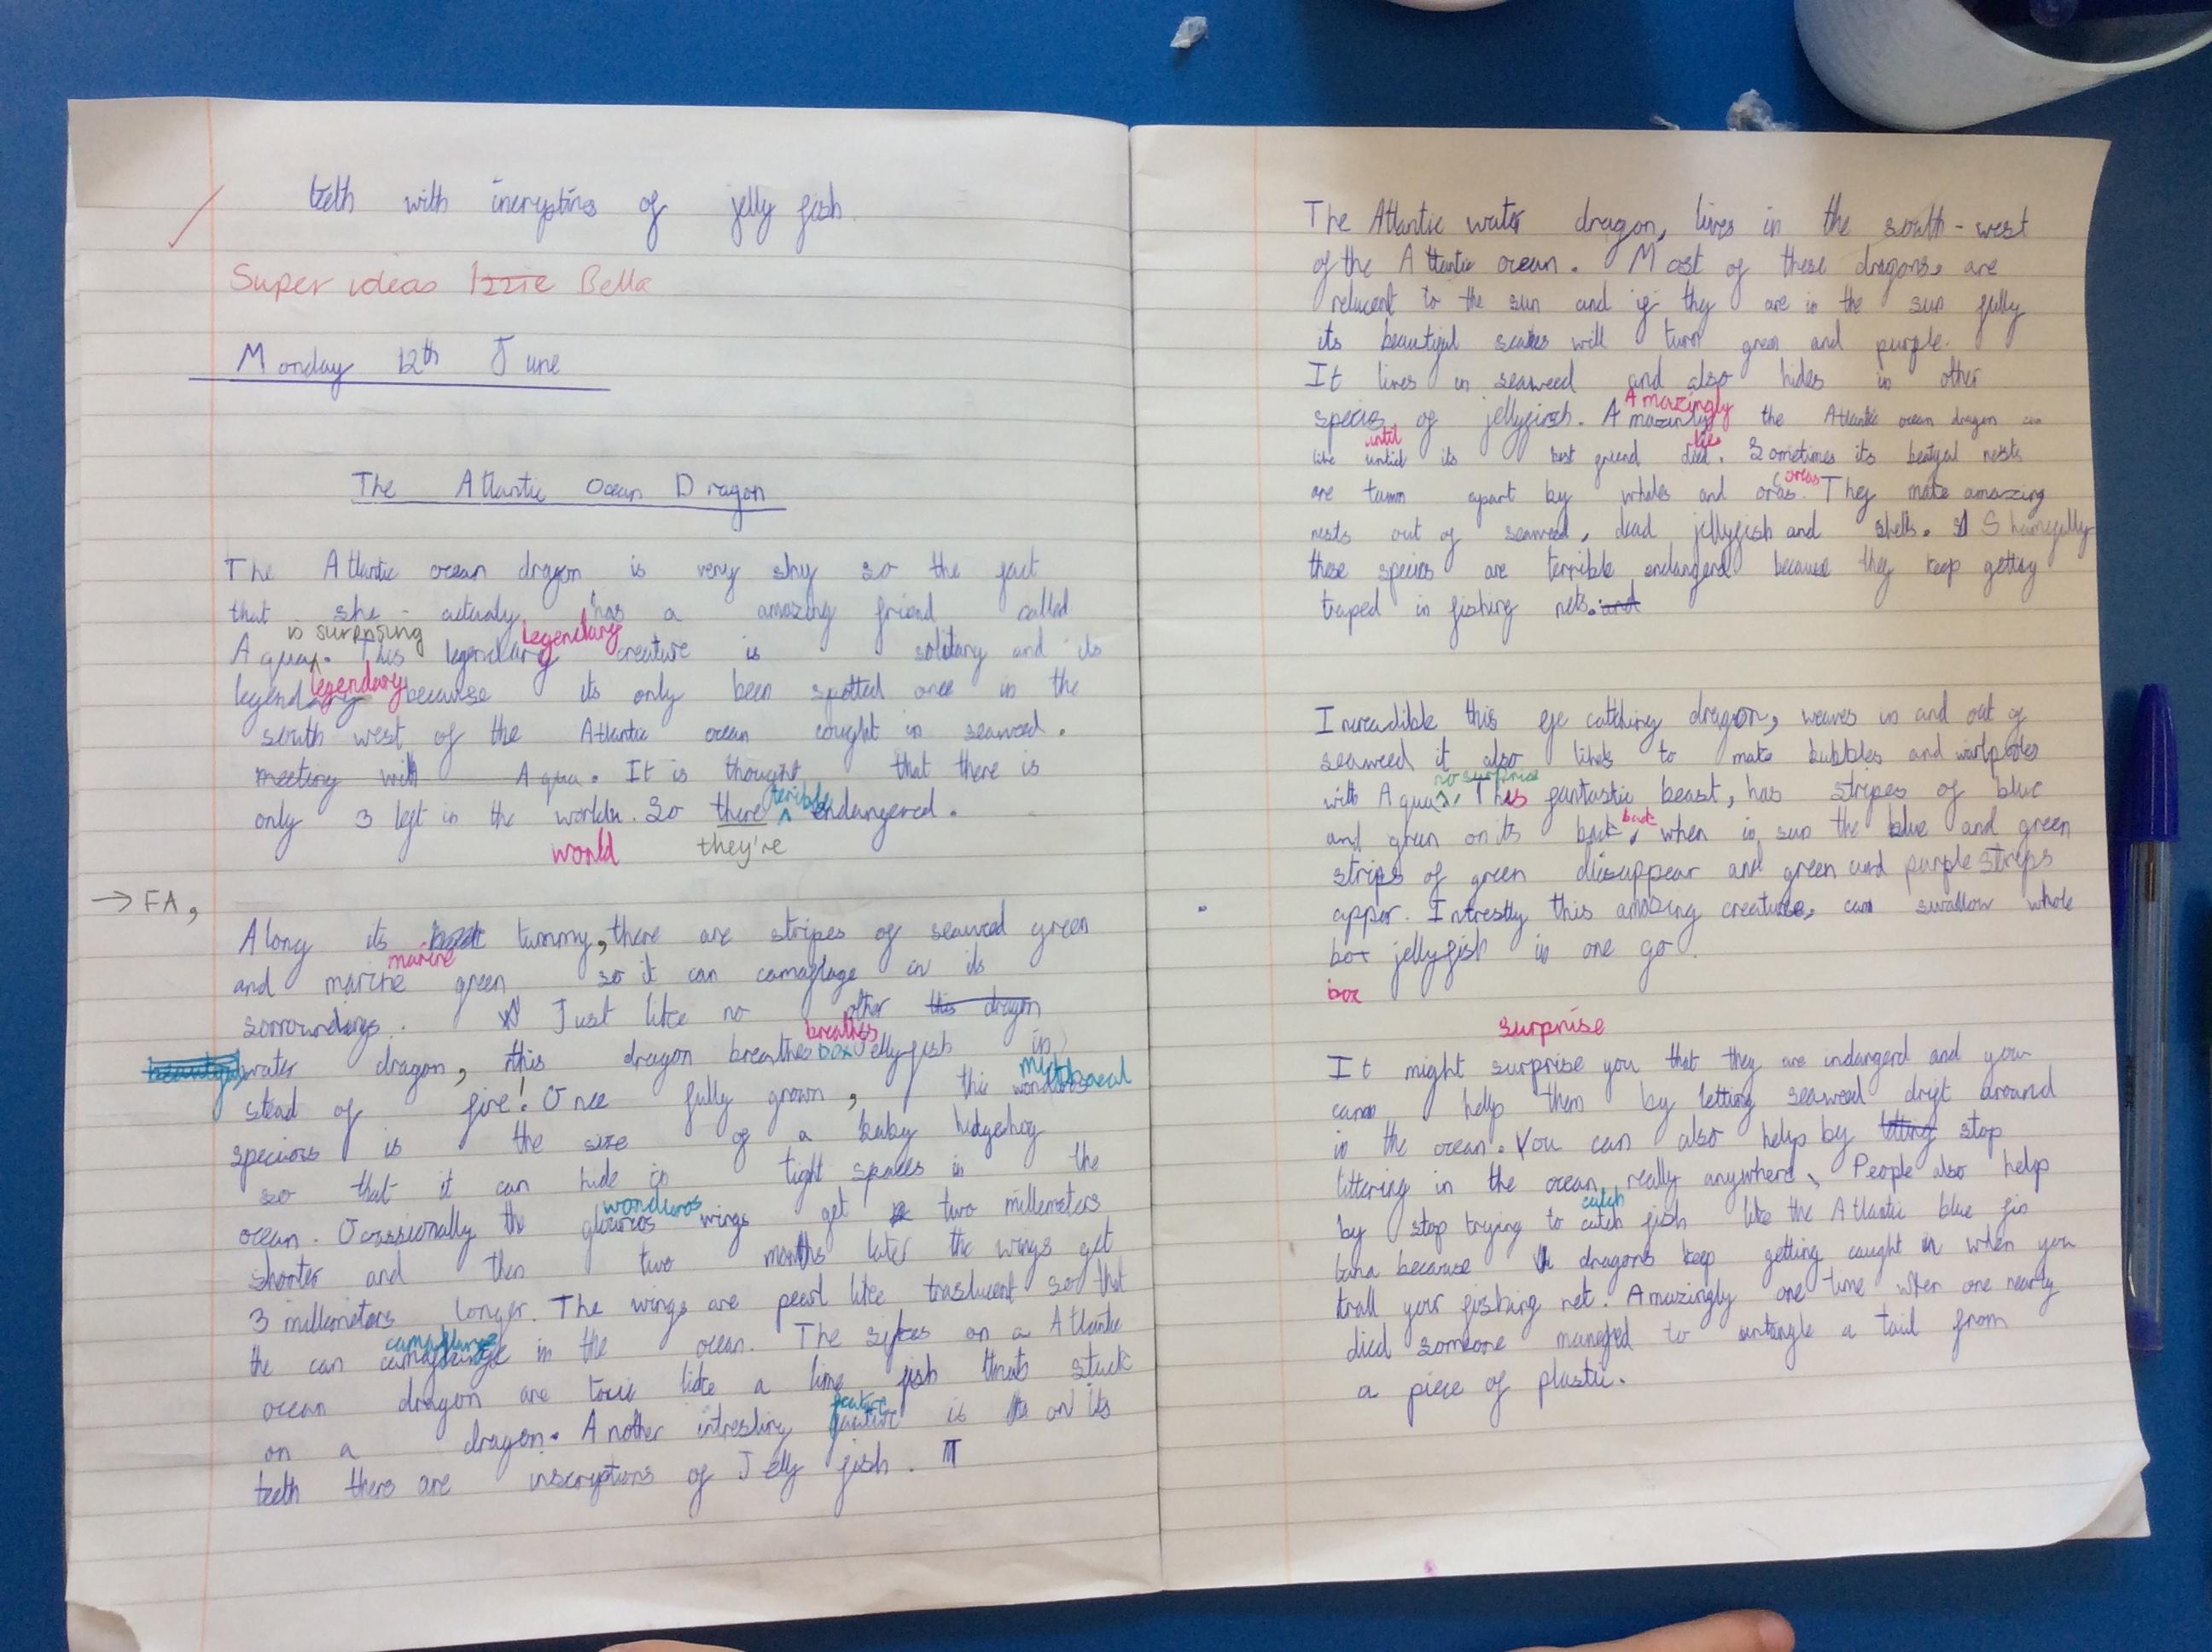 teeth with incryptins of jelly fish.
Super ideas Izzie Bella
Monday 12th June
The Atlantic Ocean Dragon
The Atlantic ocean dragon is very shy so the fact
that she actualy has a amazing friend called
is surprising legendary
Aqua. This legendary creature is solitary and its
legendary
legendary because its only been spotted once in the
south west of the Atlantic ocean cought in seaweed.
meeting with Aqua. It is thought that there is
terrible
only 3 left in the worldn. So there endangered.
world they're
→ FA,
Along its tummy, there are stripes of seaweed green
marine
and marine green so it can camaflage in its
sorroundings. Just like no other this dragon
breathes
beautiful water dragon, this dragon breathes box Jellyfish in
mythical
stead of fire! Once fully grown, this wonduros
specious is the size of a baby hedgehog
so that it can hide in tight spaces in the
wonduros
ocean. Ocassionally the glouros wings get two millemeters
shorter and then two months later the wings get
3 millemeters longer. The wings are pearl like traslucent so that
camaflarge
the can in the ocean. The spikes on a Atlantic
ocean dragon are toxic like a lime fish thats stuck
feature
on a dragon. Another intresting is on its
teeth there are inscryptions of Jelly fish.
The Atlantic water dragon, lives in the south-west
of the Atlantic ocean. Most of these dragons, are
relucent to the sun and if they are in the sun fully
its beautiful scales will turn green and purple.
It lives in seaweed and also hides in other
Amazingly
species of jellyfish. Amazinly the Atlantic ocean dragon can
until dies
live untid its best friend died. Sometimes its beatyal nests
orcas
are turn apart by whales and oras. They make amazing
nests out of seaweed, dead jellyfish and shells. Shamefully
these species are terrible endangerd because they keep getting
traped in fishing nets. and
Increadible this eye catching dragon, weaves in and out of
seaweed it also likes to make bubbles and wirlpools
no surprise
with Aqua. This fantastic beast, has stripes of blue
back
and green on its back, when in sun the blue and green
strips of green disappear and green and purple strips
apper. Intrestly this amazing creature, can swallow whole
box jellyfish in one go.
box
surprise
It might surprise you that they are indangerd and you
can help them by letting seaweed drift around
in the ocean. You can also help by letting stop
littering in the ocean really anywhere. People also help
catch
by stop trying to catch fish like the Atlantic blue fin
tuna because dragons keep getting caught in when you
trall your fishing net. Amazingly one time when one nearly
died someone managed to untangle a tail from
a piece of plastic.